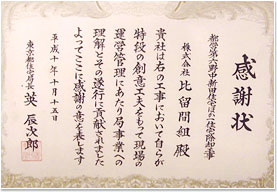 感謝状
都営第六野中新田住宅
株式会社 比留間組 殿
貴社は右の工事において自らが
特段の創意工夫をもって現場の
運営管理にあたり局事業への
理解とその遂行に貢献されました
よってここに感謝の意を表します
平成十年十月十五日
東京都住宅局長 英 辰次郎